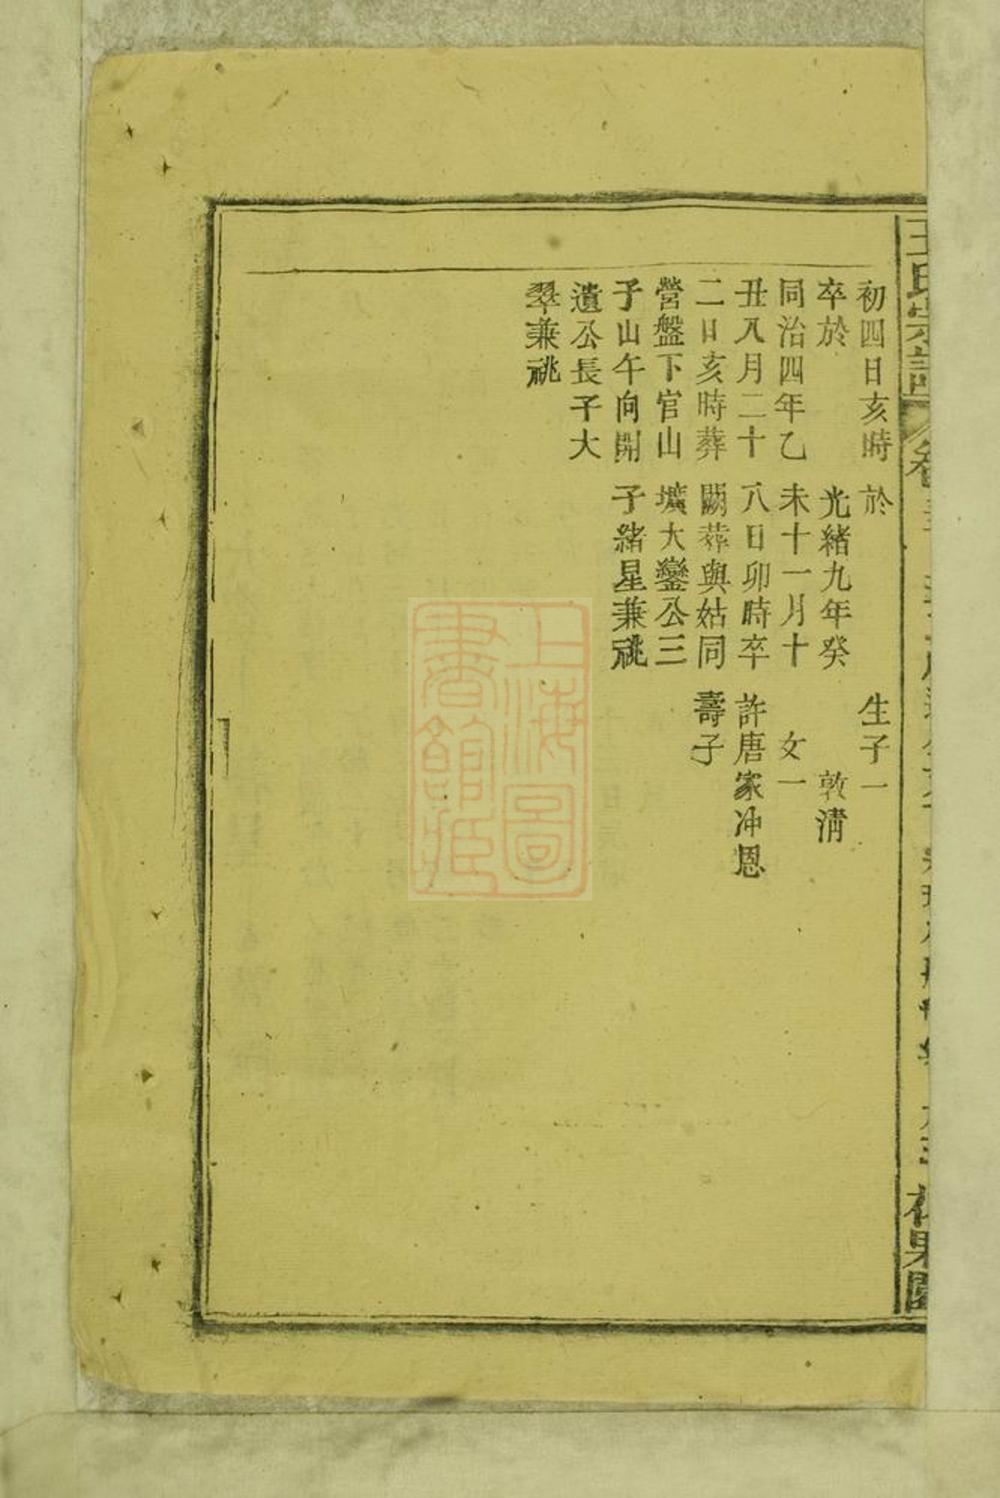 王氏宗譜
初四日亥時
卒於
同治四年乙
丑八月二十
二日亥時葬
營盤下官山
子山午向開
遺公長子大
翠兼祧
於
光緒九年癸
未十一月十
八日卯時卒
葬與姑同
壙大鑾公三
子緒星兼祧
生子一
敦清
女一
許唐家冲恩
壽子
上海圖
書館藏